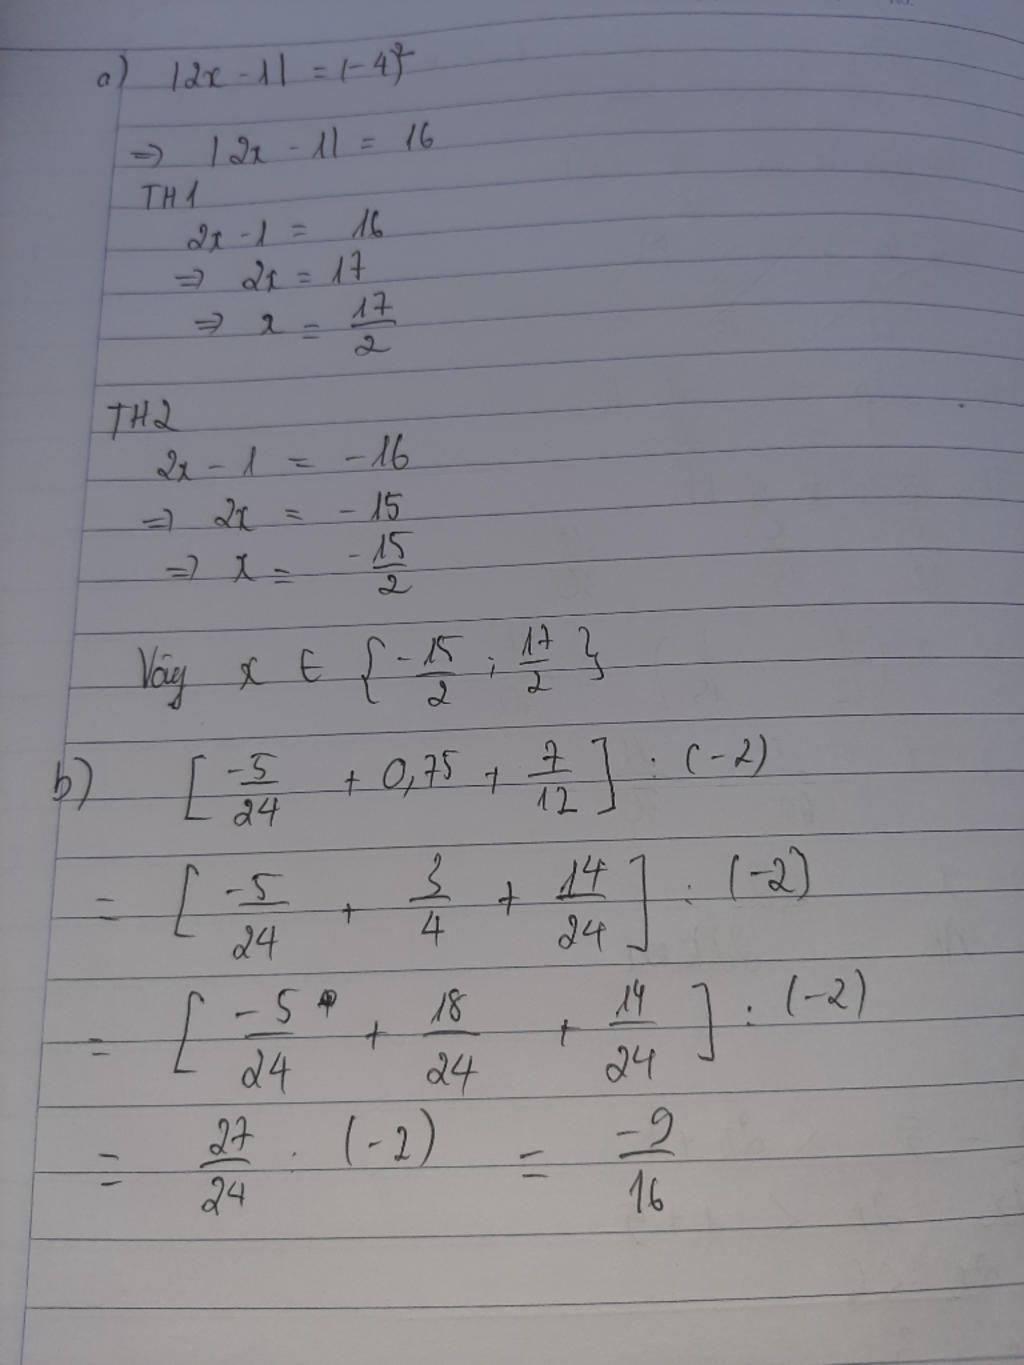 a) |2x - 1| = (-4)²
=> |2x - 1| = 16
TH1
2x - 1 = 16
=> 2x = 17
=> x = 17/2
TH2
2x - 1 = -16
=> 2x = -15
=> x = -15/2
Vậy x ∈ {-15/2 ; 17/2}
b) [-5/24 + 0,75 + 7/12] : (-2)
= [-5/24 + 3/4 + 14/24] : (-2)
= [-5/24 + 18/24 + 14/24] : (-2)
= 27/24 : (-2) = -9/16